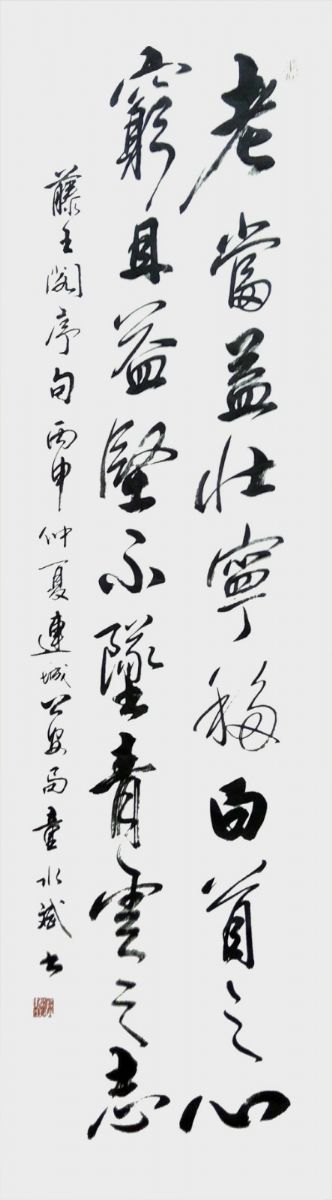 老當益壯寧移白首之心
窮且益堅不墜青雲之志
藤王閣序句丙申仲夏連城公安局童水斌書